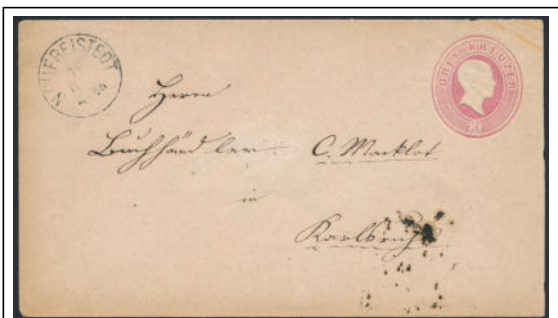 NEUFREISTEDT
DREI KREUZER
Herrn
Buchhändler C. Macklot
in
Karlsruhe